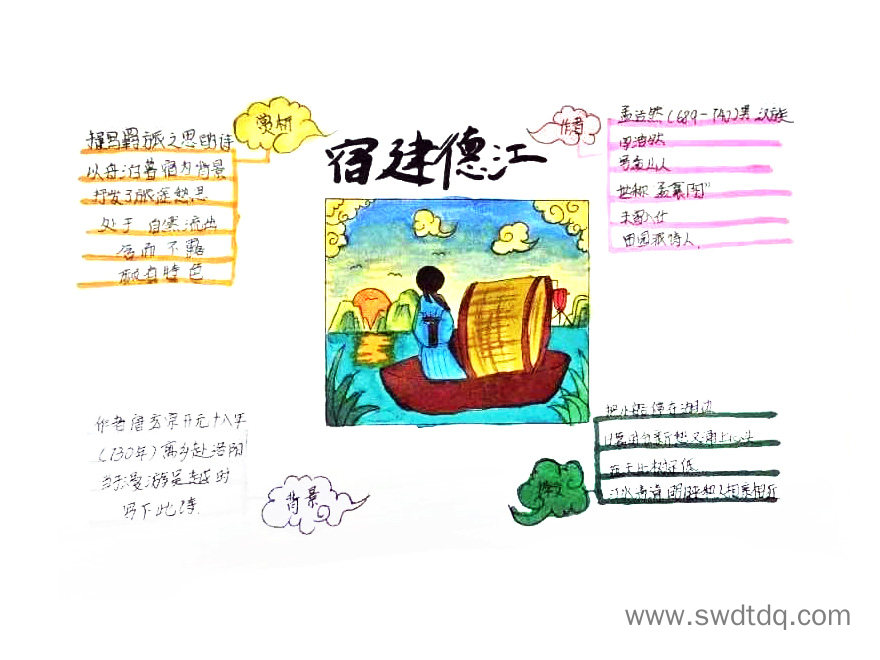 宿建德江
赏析
描写羁旅之思的诗
以舟泊暮宿为背景
抒发了旅途愁思
处于自然流出
含而不露
颇有特色
作者
孟浩然(689-740)男 汉族
字浩然
号孟山人
世称"孟襄阳"
未曾入仕
田园派诗人
作者唐玄宗开元十八年
(730年)离乡赴洛阳
于漫游吴越时
写下此诗.
背景
译文
把小船停在洲边
日暮时分新愁又涌上心头
比树还低
江水清清明月和人相亲相近
www.swdtdq.com